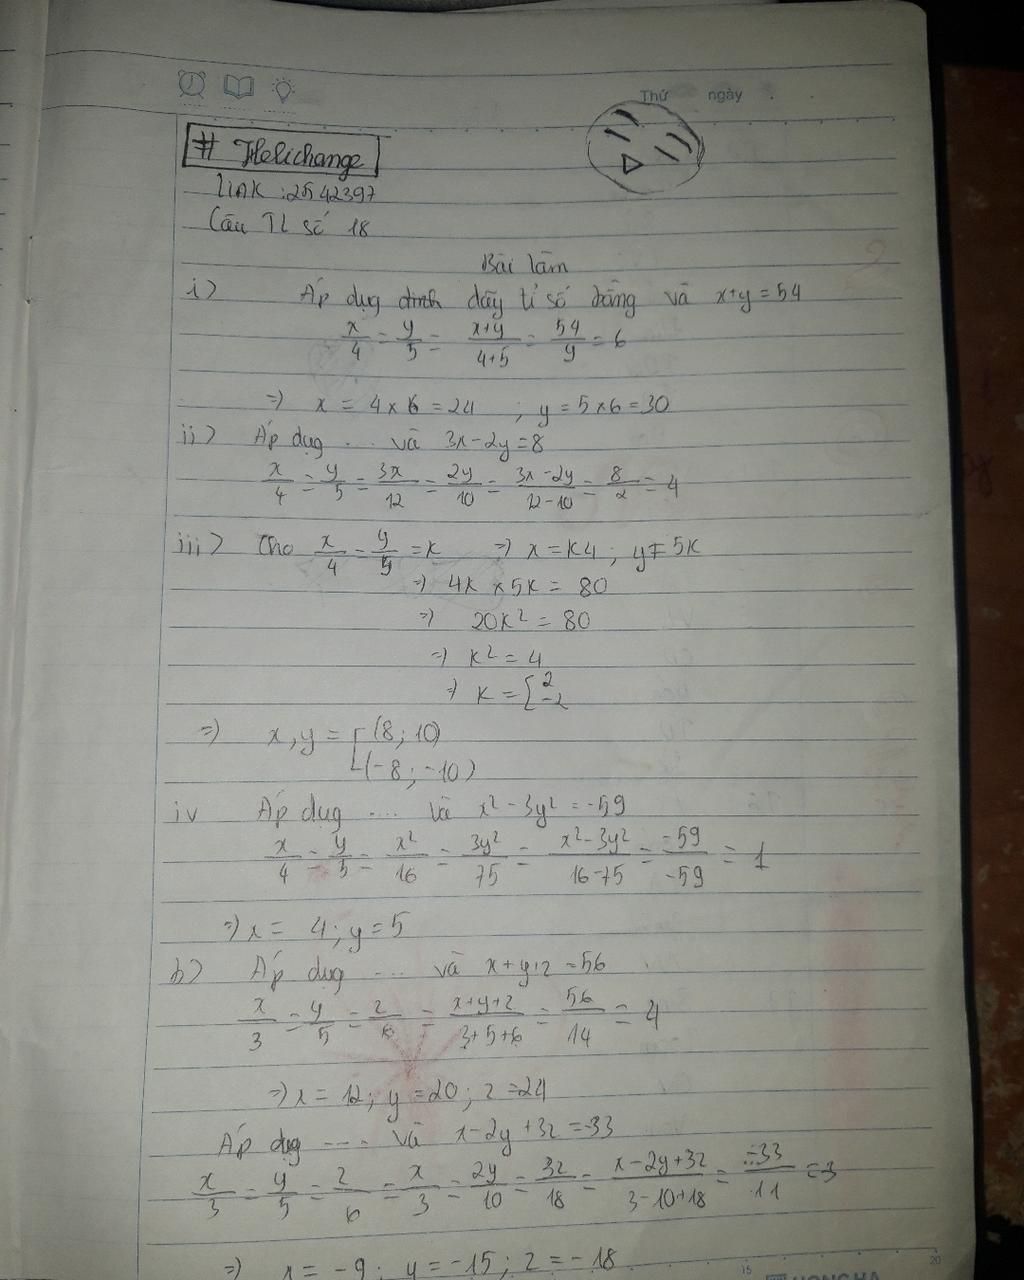 Thứ ngày
# Helichange
LINK : 2542397
Câu TL số 18
Bài làm
i> Áp dụg dtính dãy tỉ số bằng và x+y = 54
x/4 = y/5 = (x+y)/(4+5) = 54/9 = 6
=> x = 4 × 6 = 24 ; y = 5 × 6 = 30
ii> Áp dụg ... và 3x - 2y = 8
x/4 = y/5 = 3x/12 = 2y/10 = (3x - 2y)/(12 - 10) = 8/2 = 4
iii> Cho x/4 = y/5 = k => x = k4 ; y = 5k
=> 4k × 5k = 80
=> 20k² = 80
=> k² = 4
=> k = [ 2 -2
=> x, y = [ (8 ; 10) (-8 ; -10)
iv Áp dụg .... và x² - 3y² = -59
x/4 = y/5 = x²/16 = 3y²/75 = (x² - 3y²)/(16 - 75) = -59/-59 = 1
=> x = 4 ; y = 5
b> Áp dụg .... và x + y + z = 56
x/3 = y/5 = z/6 = (x+y+z)/(3+5+6) = 56/14 = 4
=> x = 12 ; y = 20 ; z = 24
Áp dụg .... và x - 2y + 3z = -33
x/3 = y/5 = z/6 = x/3 = 2y/10 = 3z/18 = (x - 2y + 3z)/(3 - 10 + 18) = -33/11 = 3
=> x = -9 ; y = -15 ; z = -18
15 20
HONG HA